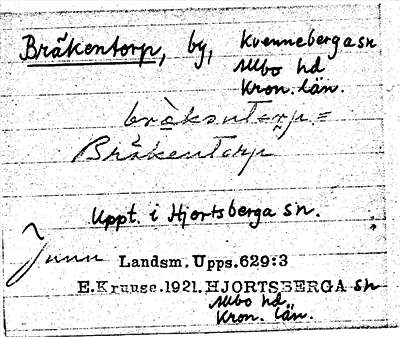 Bräkentorp, by, Kvenneberga sn
Allbo hd
Kron. län.
bräkəntorp =
Bräkentorp
Uppt. i Hjortsberga sn.
Landsm. Upps. 629:3
E. Kruuse. 1921. HJORTSBERGA sn
Allbo hd.
Kron. län.